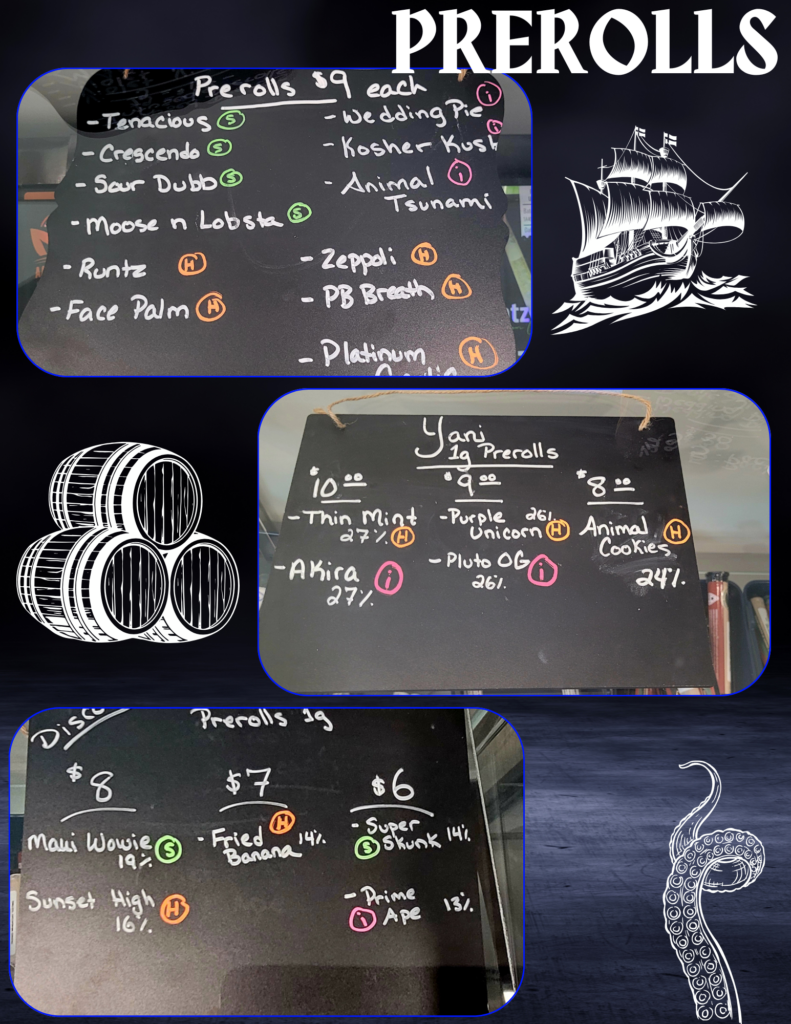 PREROLLS
Prerolls $9 each
- Tenacious S
- Crescendo S
- Sour Dubb S
- Moose n Lobsta S
- Runtz H
- Face Palm H
- Wedding Pie i
- Kosher Kush i
- Animal i
Tsunami
- Zeppoli H
- PB Breath H
- Platinum H
Yani
1g Prerolls
$10.00
- Thin Mint
27% H
- Akira i
27%
$9.00
- Purple 26%
Unicorn H
- Pluto OG i
26%
$8.00
Animal H
Cookies
24%
Prerolls 1g
$8
Maui Wowie S
19%
Sunset High H
16%
$7
- Fried H 14%
Banana
$6
- Super 14%
S Skunk
- Prime 13%
i Ape